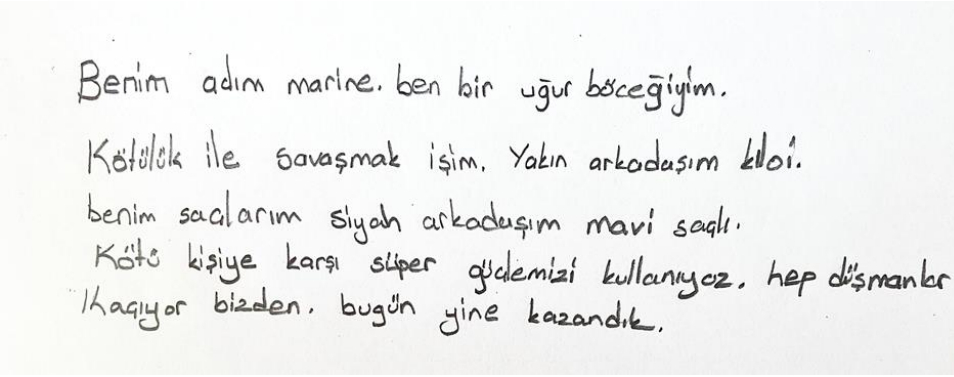 Benim adım marine. ben bir uğur böceğiyim.
Kötülük ile savaşmak işim. Yakın arkadaşım kloi.
benim saclarım siyah arkadaşım mavi saçlı.
Kötü kişiye karşı süper güclemizi kullanıyoz. hep düşmanlar
kaçıyor bizden. bugün yine kazandık.